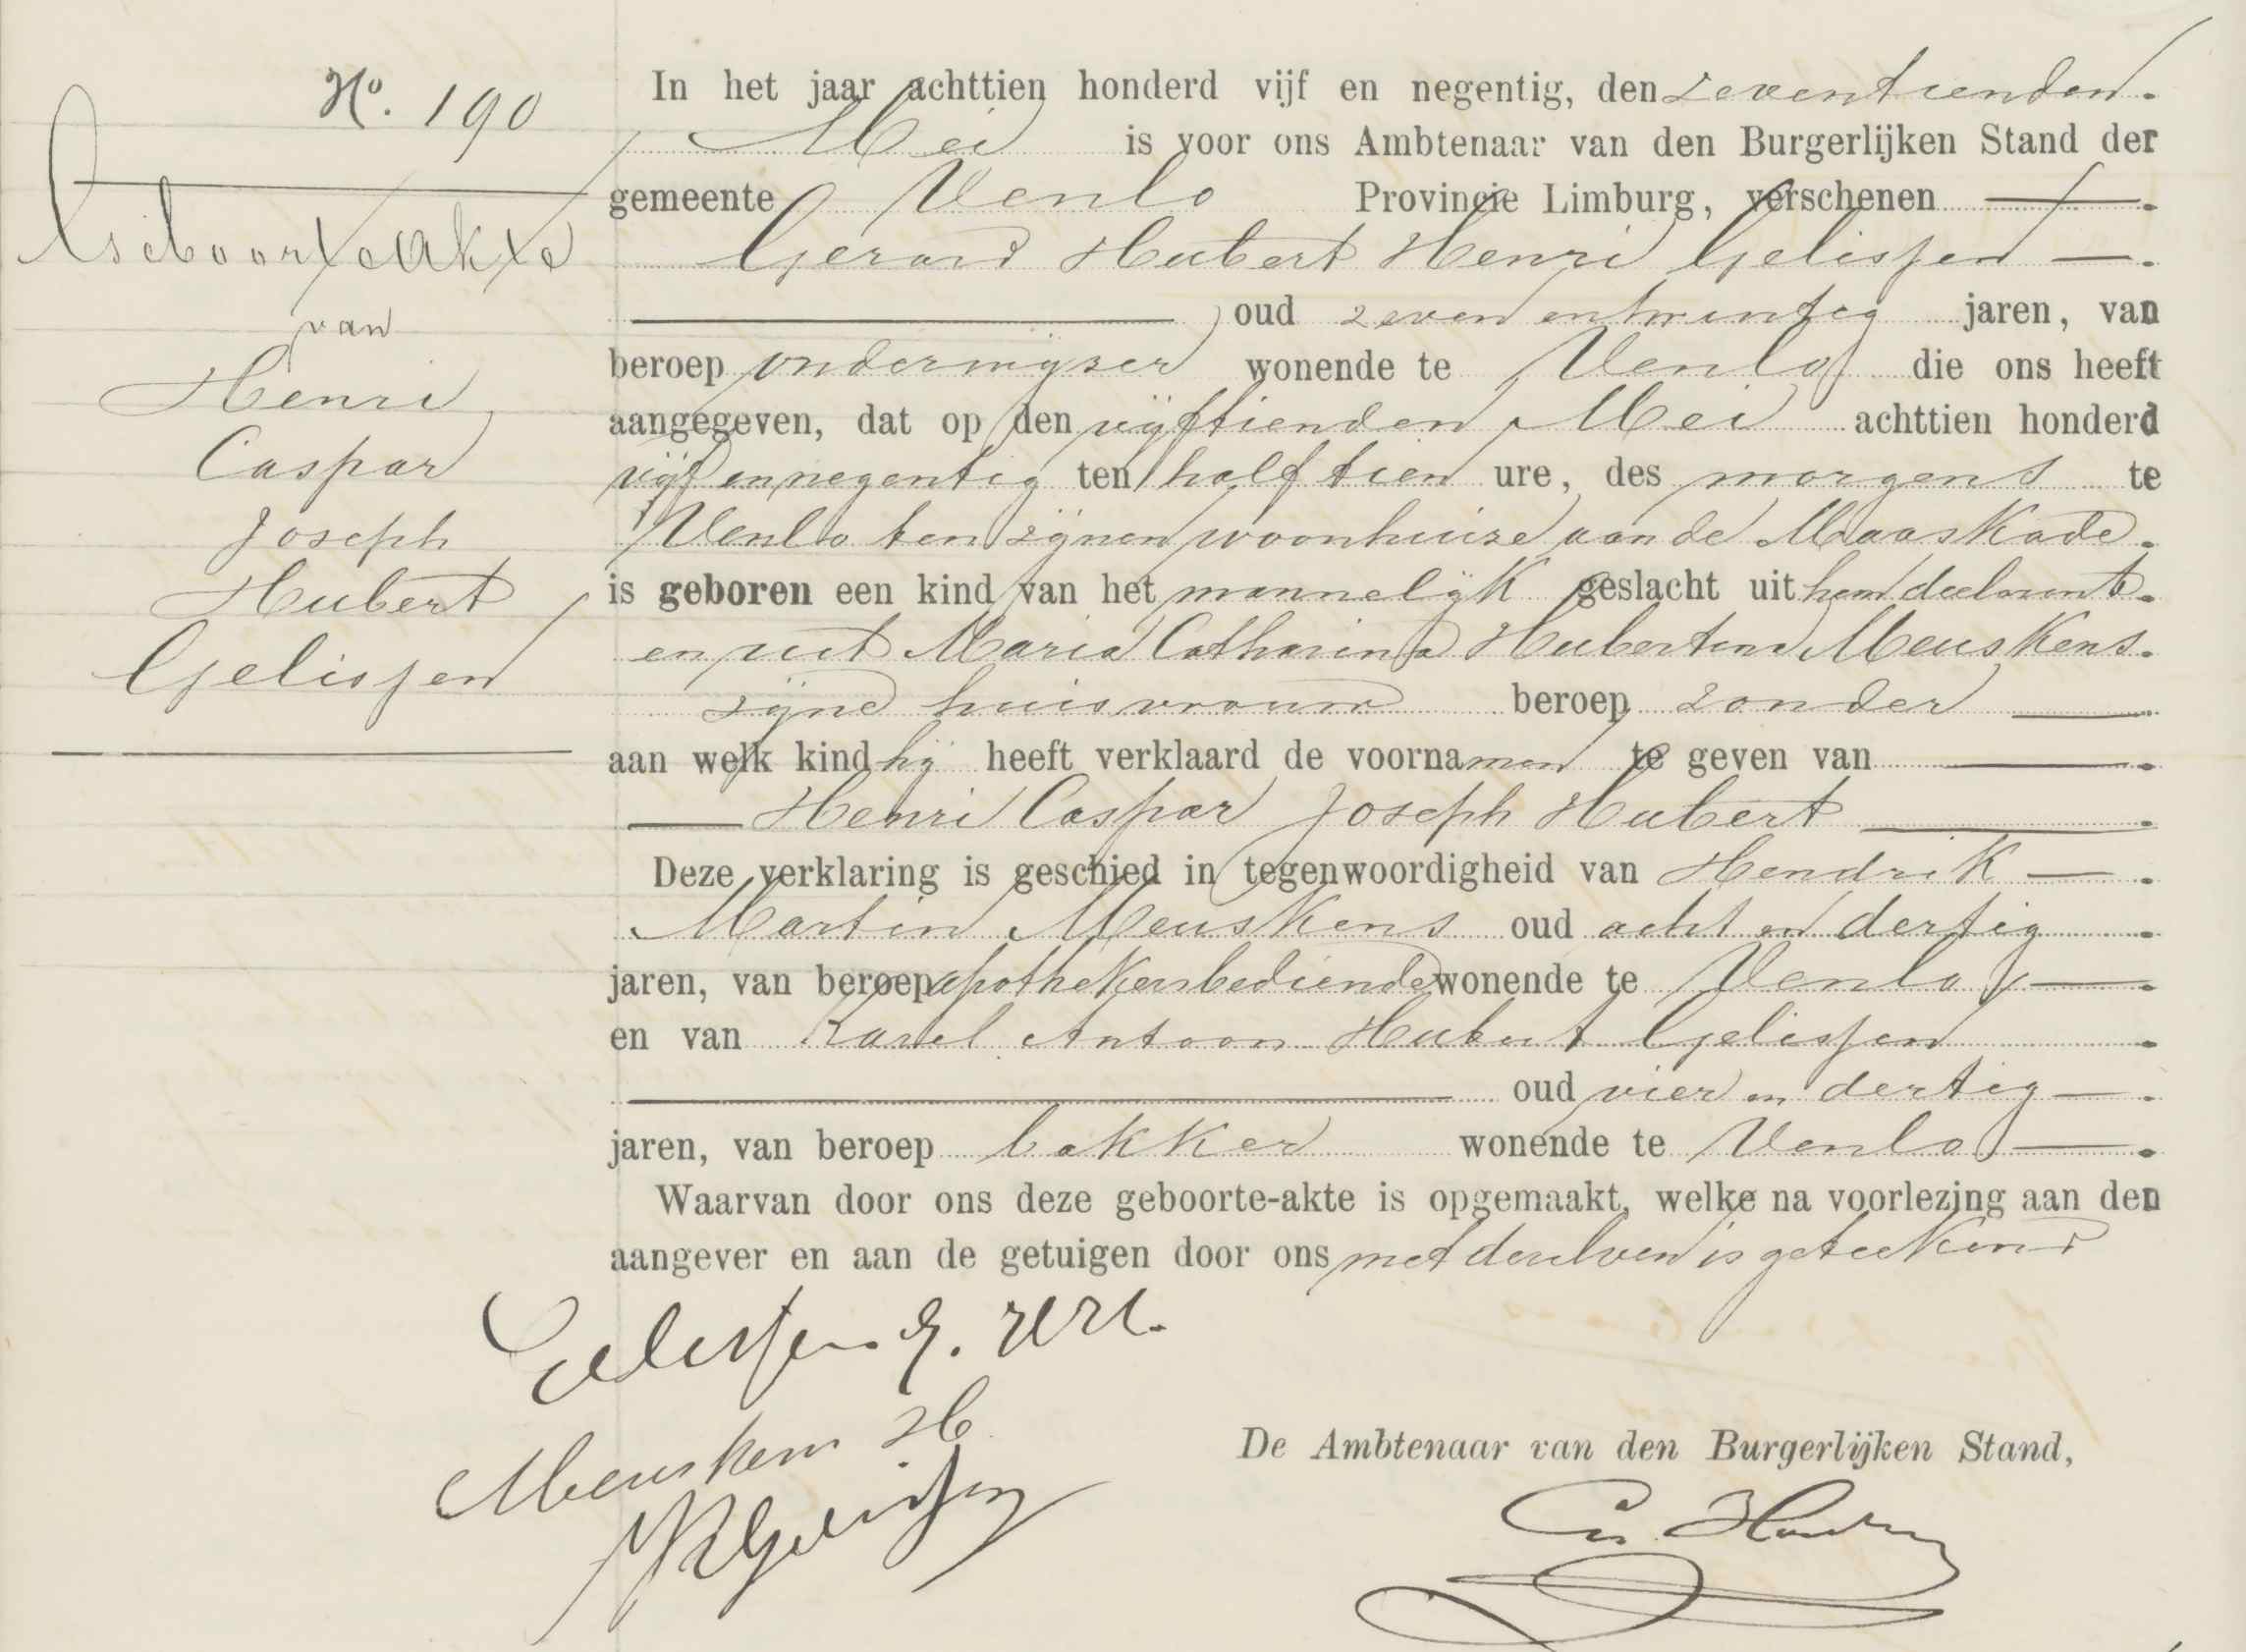 No. 190
Geboorteakte
van
Henri
Caspar
Joseph
Hubert
Gelissen
In het jaar achttien honderd vijf en negentig, den zeventienden
Mei is voor ons Ambtenaar van den Burgerlijken Stand der
gemeente Venlo Provincie Limburg, verschenen
Gerard Hubert Henri Gelissen
oud zeven en twintig jaren, van
beroep onderwijzer wonende te Venlo die ons heeft
aangegeven, dat op den vijftienden Mei achttien honderd
vijf en negentig ten half tien ure, des morgens te
Venlo ten zijnen woonhuize aan de Maaskade
is geboren een kind van het mannelijk geslacht uit hem declarant
en uit Maria Catharina Hubertina Meuskens
zijne huisvrouw beroep zonder
aan welk kind hij heeft verklaard de voornamen te geven van
Henri Caspar Joseph Hubert
Deze verklaring is geschied in tegenwoordigheid van Hendrik
Martin Meuskens oud acht en dertig
jaren, van beroep apothekersbediende wonende te Venlo
en van Karel Antoon Hubert Gelissen
oud vier en dertig
jaren, van beroep bakker wonende te Venlo
Waarvan door ons deze geboorte-akte is opgemaakt, welke na voorlezing aan den
aangever en aan de getuigen door ons met dezelven is geteekend
Gelissen G. H. H.
Meuskens H
Gelissen
De Ambtenaar van den Burgerlijken Stand,